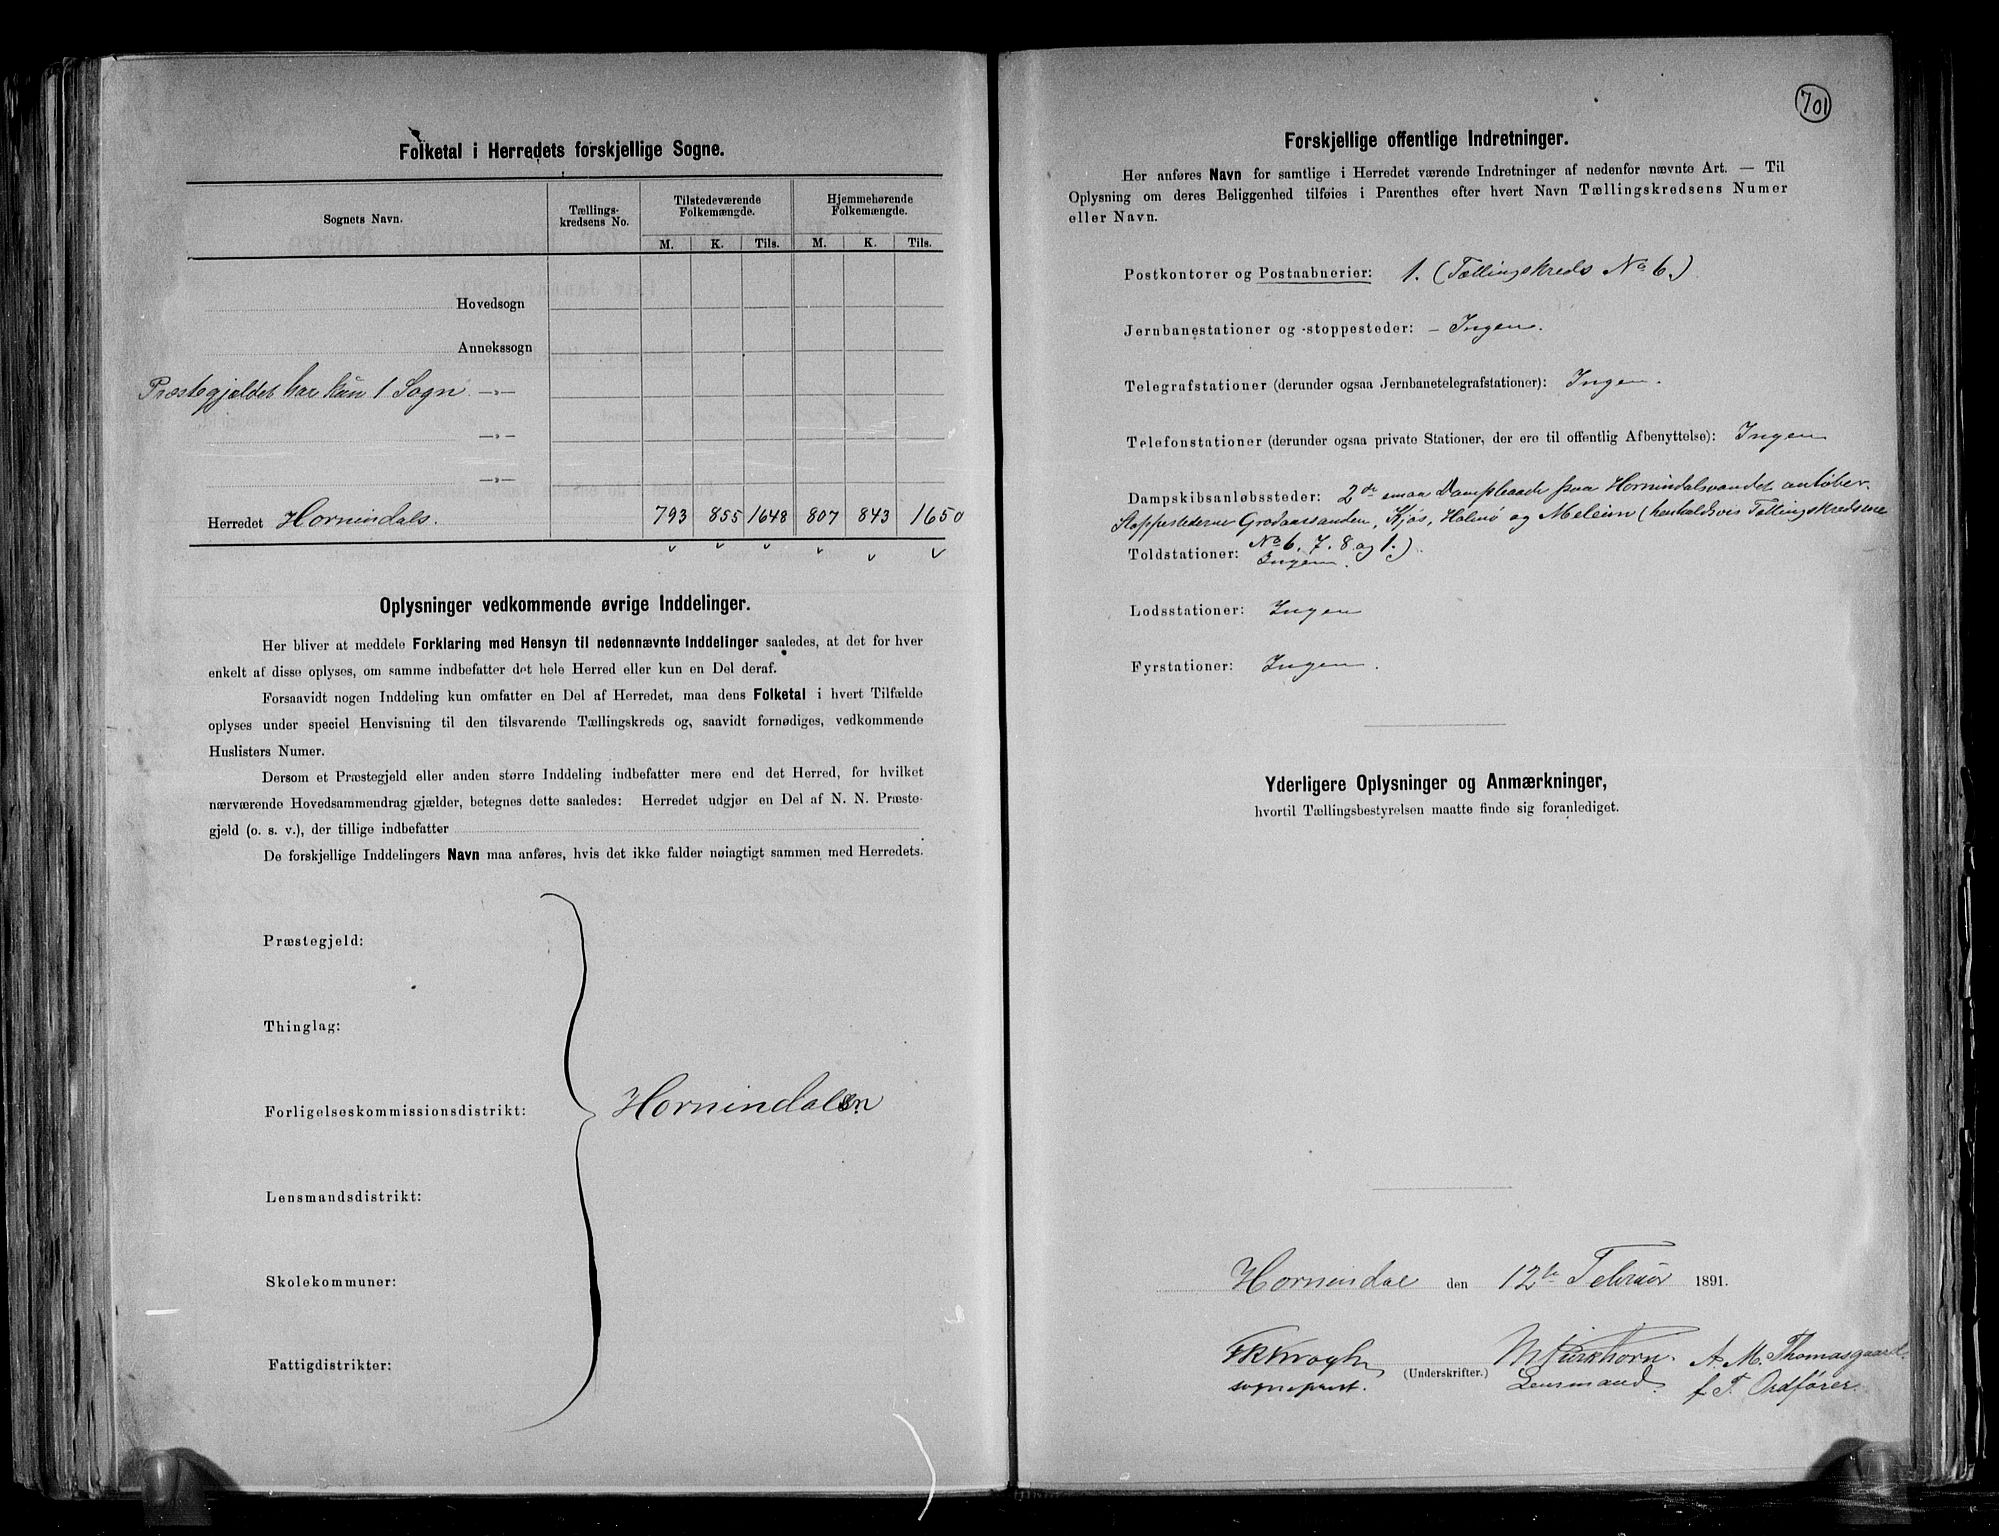 Folketal i Herredets forskjellige Sogne.
Sognets Navn. Tællings-kredsens No. Tilstedeværende Folkemængde. Hjemmehørende Folkemængde.
M. K. Tils. M. K. Tils.
Hovedsogn
Annekssogn
Præstegjældet har kun 1 Sogn —„—
—„—
—„—
Herredet Hornindals. 793 855 1648 807 843 1650
Oplysninger vedkommende øvrige Inddelinger.
Her bliver at meddele Forklaring med Hensyn til nedennævnte Inddelinger saaledes, at det for hver
enkelt af disse oplyses, om samme indbefatter det hele Herred eller kun en Del deraf.
Forsaavidt nogen Inddeling kun omfatter en Del af Herredet, maa dens Folketal i hvert Tilfælde
oplyses under speciel Henvisning til den tilsvarende Tællingskreds og, saavidt fornødiges, vedkommende
Huslisters Numer.
Dersom et Præstegjeld eller anden større Inddeling indbefatter mere end det Herred, for hvilket
nærværende Hovedsammendrag gjælder, betegnes dette saaledes: Herredet udgjør en Del af N. N. Præste-
gjeld (o. s. v.), der tillige indbefatter
De forskjellige Inddelingers Navn maa anføres, hvis det ikke falder nøiagtigt sammen med Herredets.
Præstegjeld:
Thinglag:
Forligelseskommissionsdistrikt: Hornindalen
Lensmandsdistrikt:
Skolekommuner:
Fattigdistrikter:
701
Forskjellige offentlige Indretninger.
Her anføres Navn for samtlige i Herredet værende Indretninger af nedenfor nævnte Art. — Til
Oplysning om deres Beliggenhed tilføies i Parenthes efter hvert Navn Tællingskredsens Numer
eller Navn.
Postkontorer og Postaabnerier: 1. (Tællingskreds No 6.)
Jernbanestationer og -stoppesteder: – Ingen.
Telegrafstationer (derunder ogsaa Jernbanetelegrafstationer): Ingen.
Telefonstationer (derunder ogsaa private Stationer, der ere til offentlig Afbenyttelse): Ingen
Dampskibsanløbssteder: 2de smaa Dampbaade paa Hornindalsvandet anløber
Stoppestederne Grodaassanden, Kjøs, Holmø og (henholdsvis Tællingskredsene
No 6, 7. 8 og 1.)
Toldstationer: Ingen.
Lodsstationer: Ingen
Fyrstationer: Ingen.
Yderligere Oplysninger og Anmærkninger,
hvortil Tællingsbestyrelsen maatte finde sig foranlediget.
Hornindal den 12te Februar 1891.
Krogh (Underskrifter.) A. M. Thomasgaard.
sogneprest. Lensmand. f. T. Ordfører.